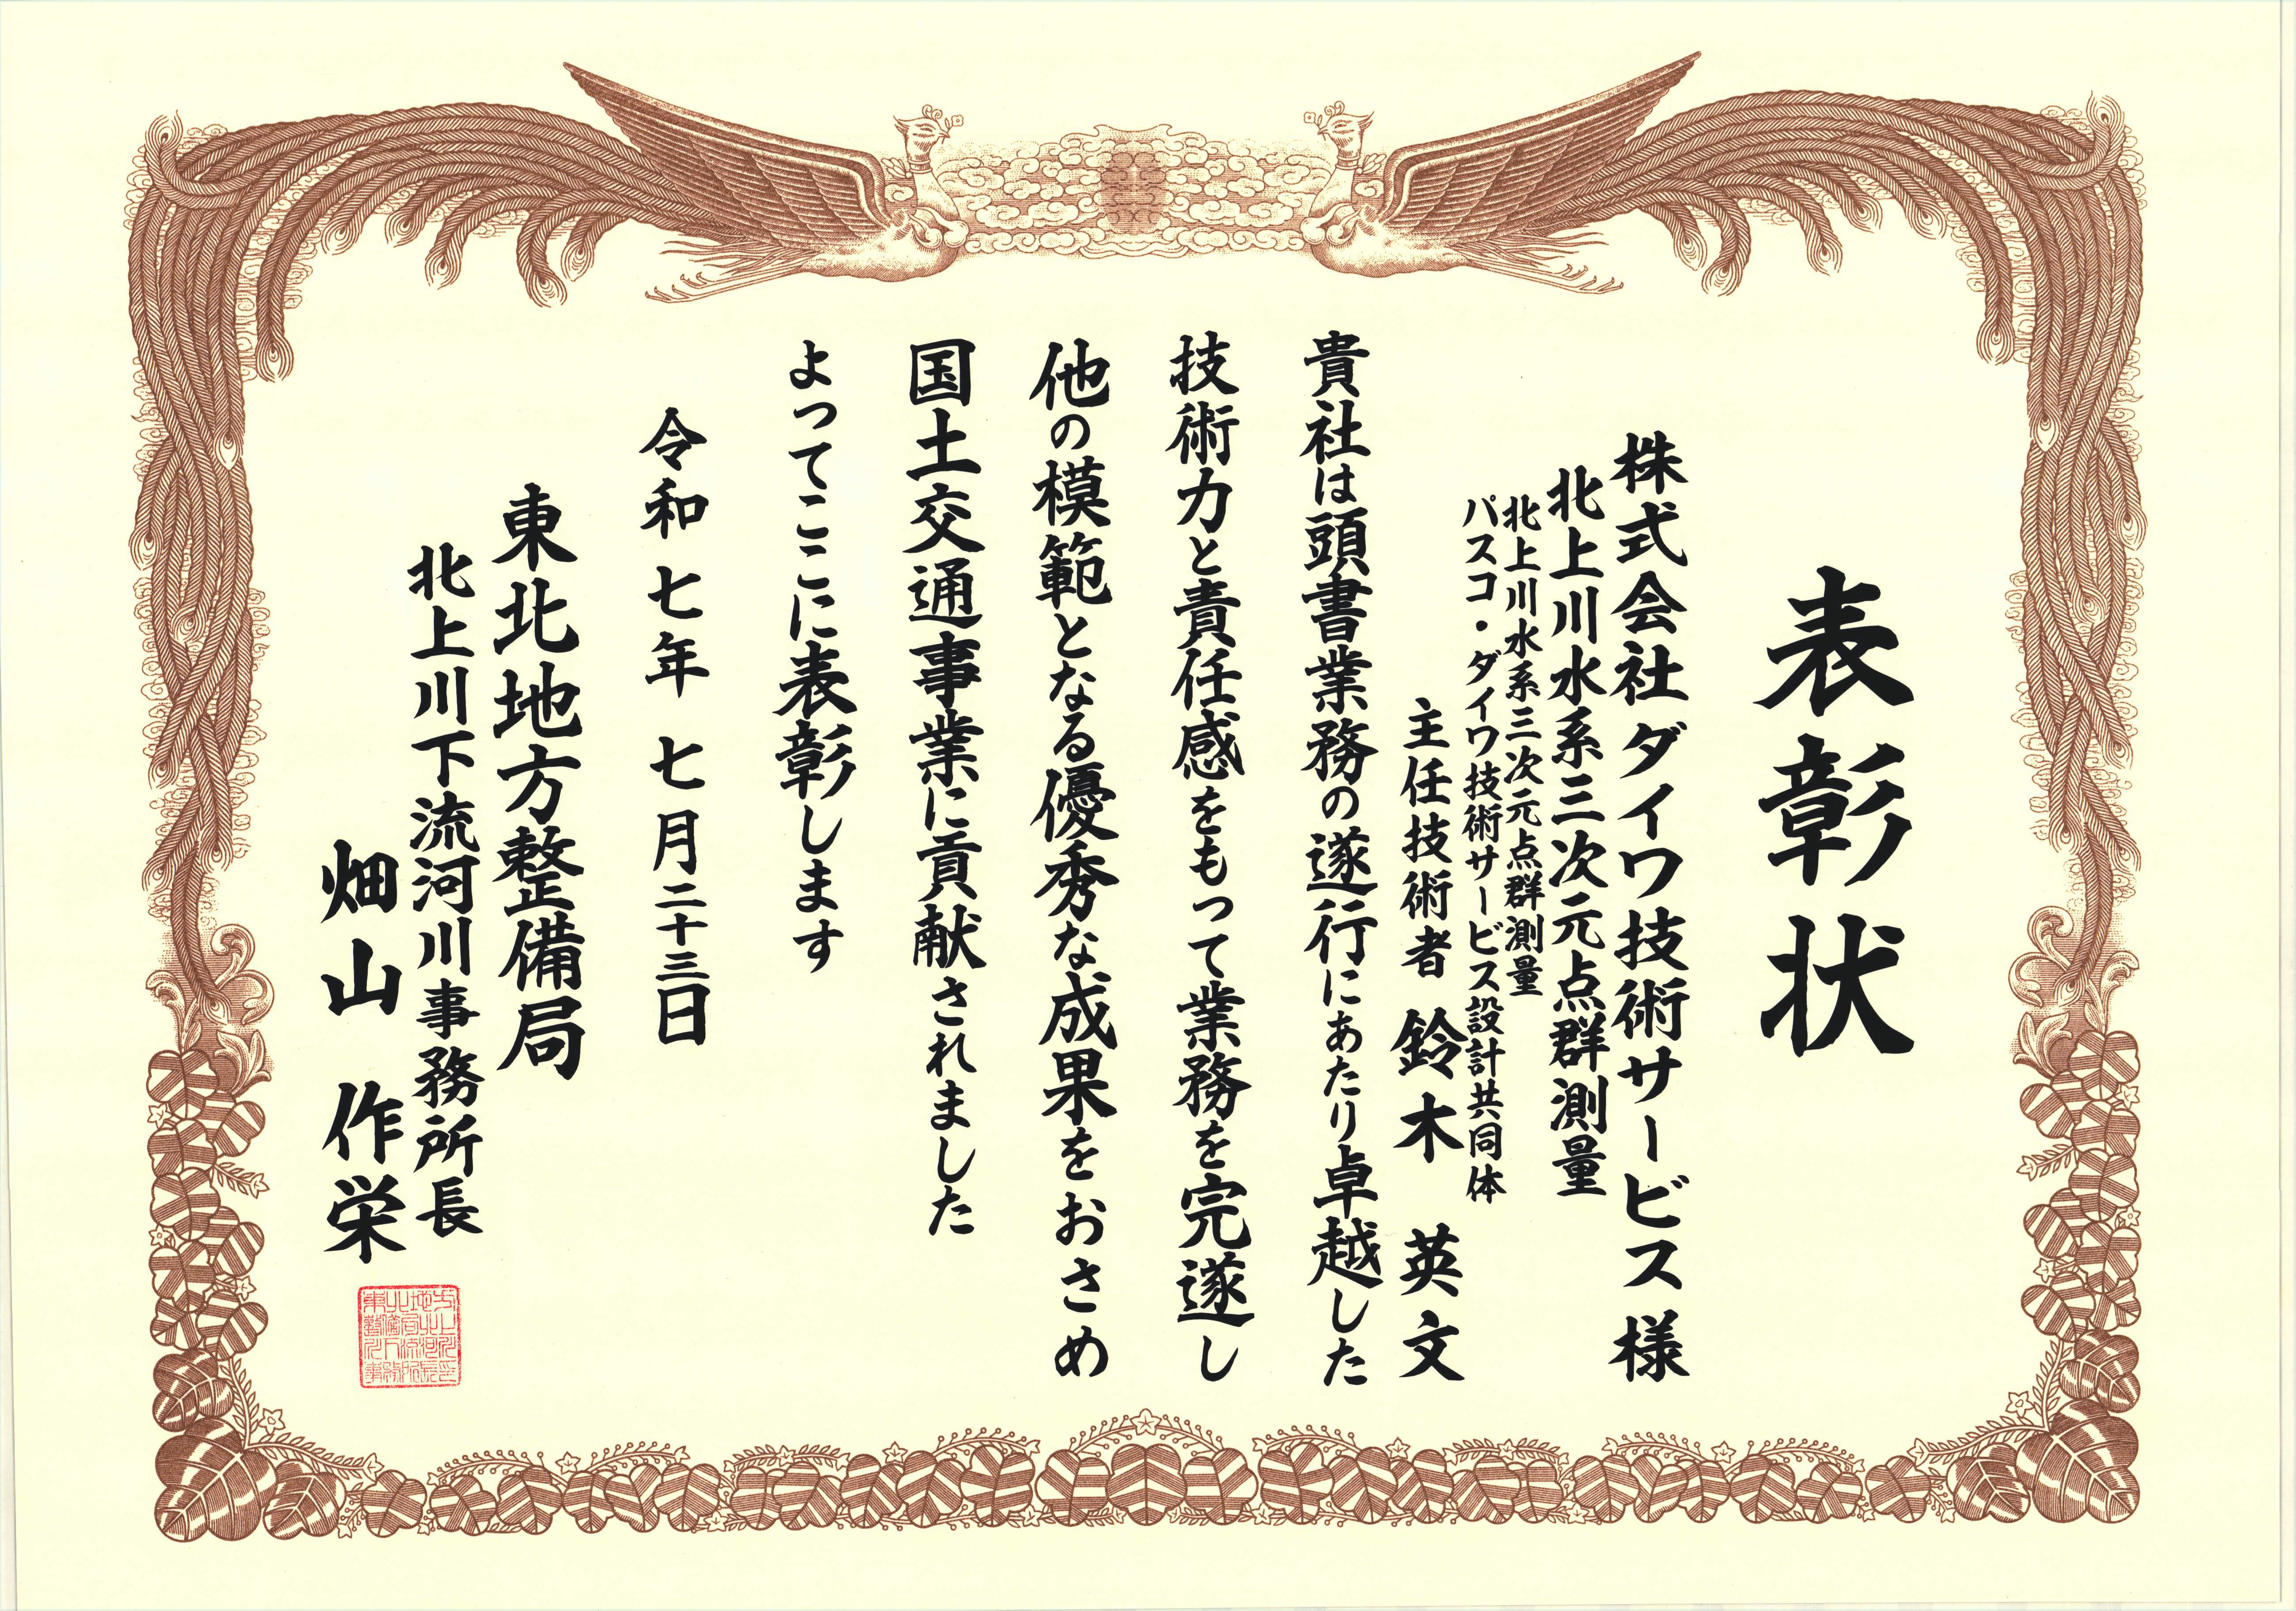 表彰状
株式会社ダイワ技術サービス様
北上川水系三次元点群測量
北上川水系三次元点群測量
パスコ・ダイワ技術サービス設計共同体
主任技術者 鈴木 英文
貴社は頭書業務の遂行にあたり卓越した
技術力と責任感をもって業務を完遂し
他の模範となる優秀な成果をおさめ
国土交通事業に貢献されました
よってここに表彰します
令和七年 七月二十三日
東北地方整備局
北上川下流河川事務所長
畑山 作栄